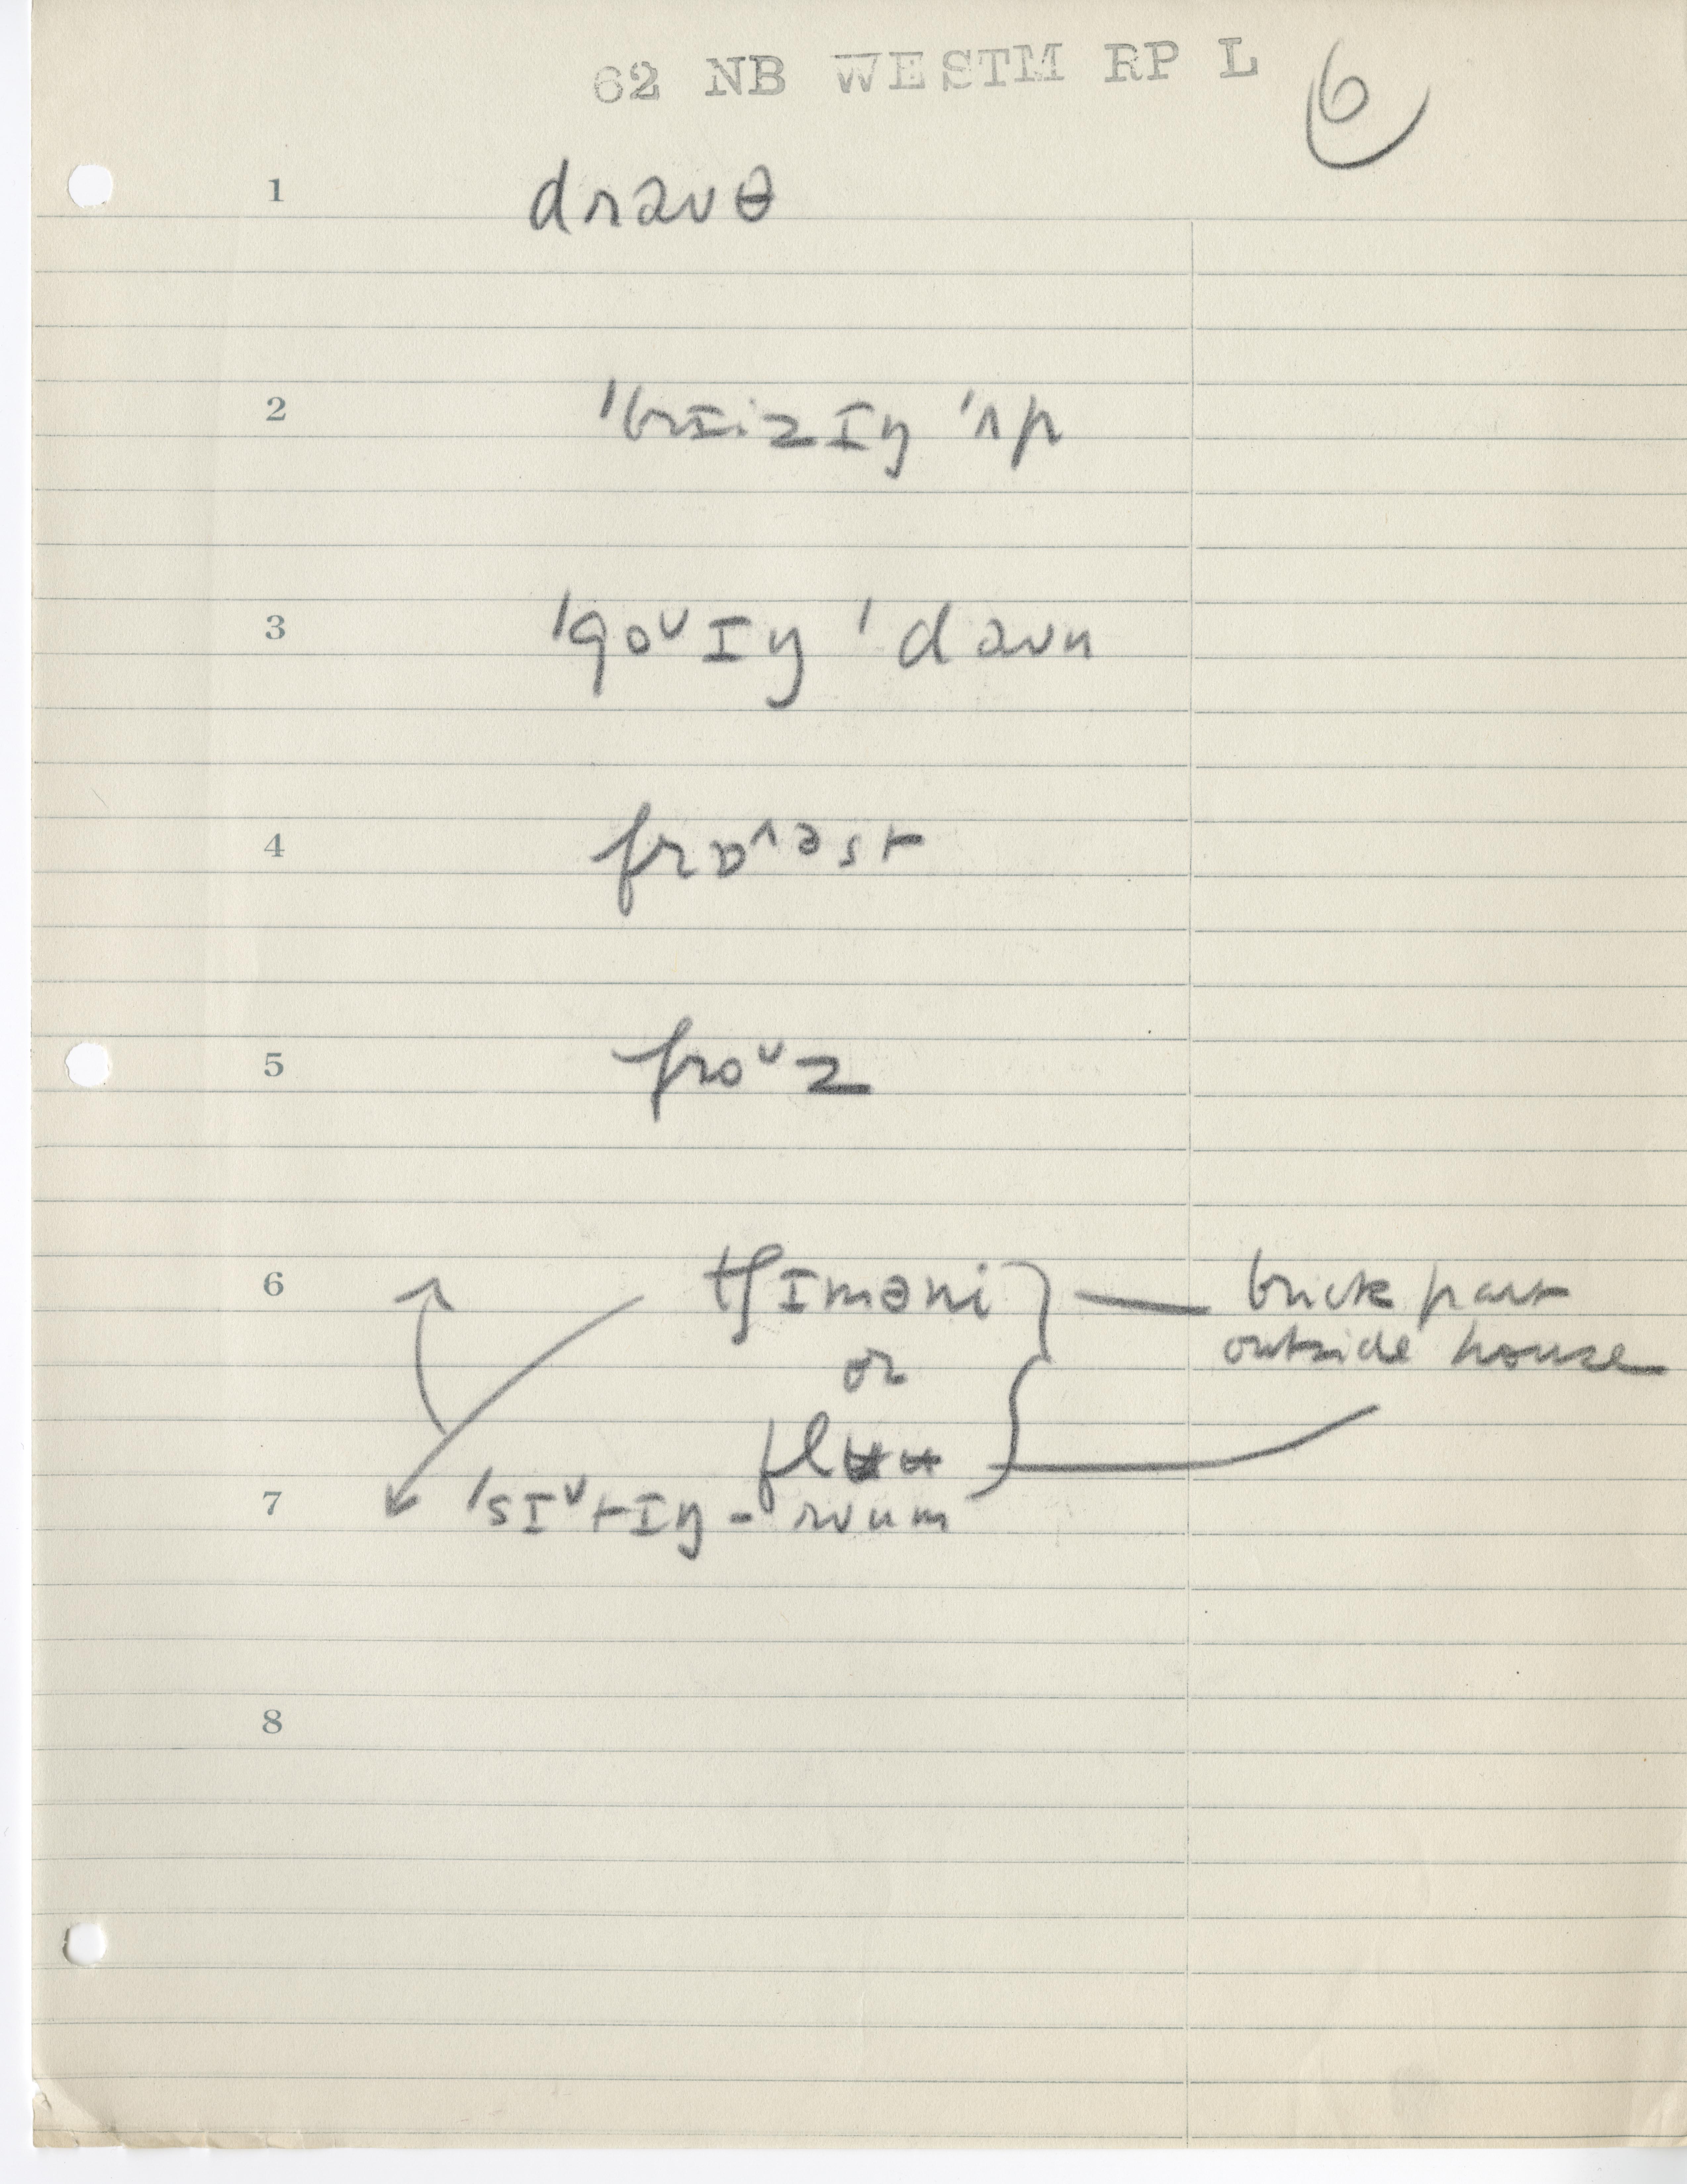 62 NB WESTM RP L 6
1 draʊθ
2 ˈbrɪizɪŋ ˈʌp
3 ˈgoᵛɪŋ ˈdaʊn
4 frɒ^əst
5 froᵛz
6 tʃɪməni } — brick part
outside house
or
flʉʉ
7 ˈsɪᵛtɪŋ-rʊum
8